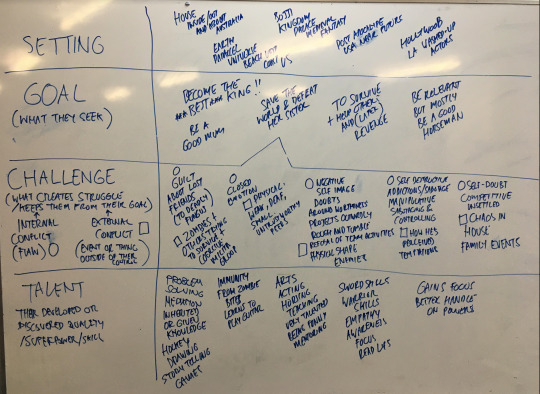 SETTING
HOUSE
INSIDE/OUT
AND ABOUT
AUSTRALIA
EARTH
PARALLEL
UNIVERSE
BEACH WEST
COAST US
KINGDOM
PALACE
MEDIEVAL
FANTASY
POST APOCALYPSE
USA NEAR FUTURE
HOLLYWOOD
LA WASHED-UP
ACTORS
GOAL
(WHAT THEY SEEK)
BECOME THE
BEST KING!!
BE A
GOOD MUM
SAVE THE
WORLD & DEFEAT
HER SISTER
TO SURVIVE
+ HELP OTHERS
AND (LATER)
REVENGE
BE RELEVANT
BUT MOSTLY
BE A GOOD
HORSEMAN
CHALLENGE
(WHAT CREATES STRUGGLE
/KEEPS THEM FROM THEIR GOAL)
INTERNAL
CONFLICT
(FLAW)
EXTERNAL
CONFLICT
(EVENT OR THING
OUTSIDE OF THEIR
CONTROL)
GUILT
ABOUT LOST
FRIENDS
ZOMBIES +
CLOSED
EMOTION
PHYSICAL-
WEAK, DEAF,
SMALL
NEGATIVE
SELF IMAGE
DOUBTS
AROUND WORTHINESS
PROJECTS OUTWARDLY
ROUGH AND TUMBLE
REFUSAL OF TEAM ACTIVITIES
PHYSICAL SHAPE
SELF DESTRUCTIVE
MANIPULATIVE
SABOTAGING &
CONTROLLING
HOW HE'S
PERCEIVED
TEMPTATIONS
SELF-DOUBT
COMPETITIVE
UNSETTLED
CHAOS IN
HOUSE
FAMILY EVENTS
TALENT
THEIR DEVELOPED OR
DISCOVERED QUALITY
/SUPERPOWER/SKILL
PROBLEM
SOLVING
MEDIATION
INHERITED
OR GIVEN
KNOWLEDGE
HOCKEY
DRAWING
STORY TELLING
GAMES
IMMUNITY
FROM ZOMBIE
BITES
LEARNS TO
PLAY GUITAR
ARTS
ACTING
TEACHING
VERY TALENTED
BEING FUNNY
MENTORING
SWORD SKILLS
WARRIOR
SKILLS
EMPATHY
AWARENESS
FOCUS
READ LIPS
GAINS FOCUS
BETTER HANDLE
ON POWERS